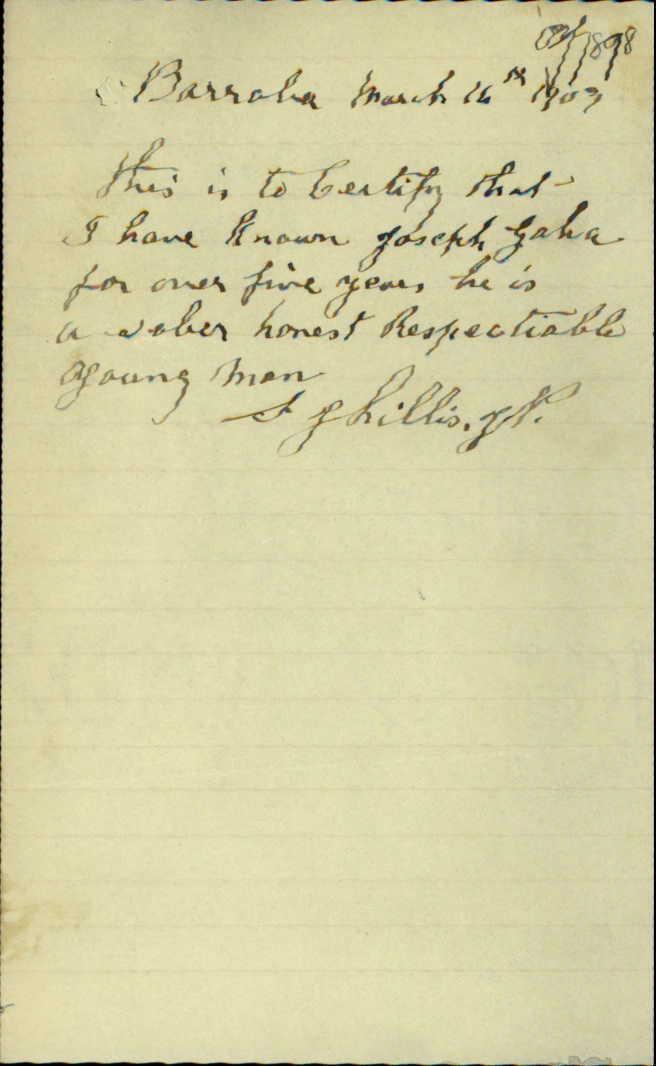 Barraba March 16th 1903
This is to Certify that
I have known Joseph Gaha
for over five years he is
a sober honest Respectiable
young man
J.P.